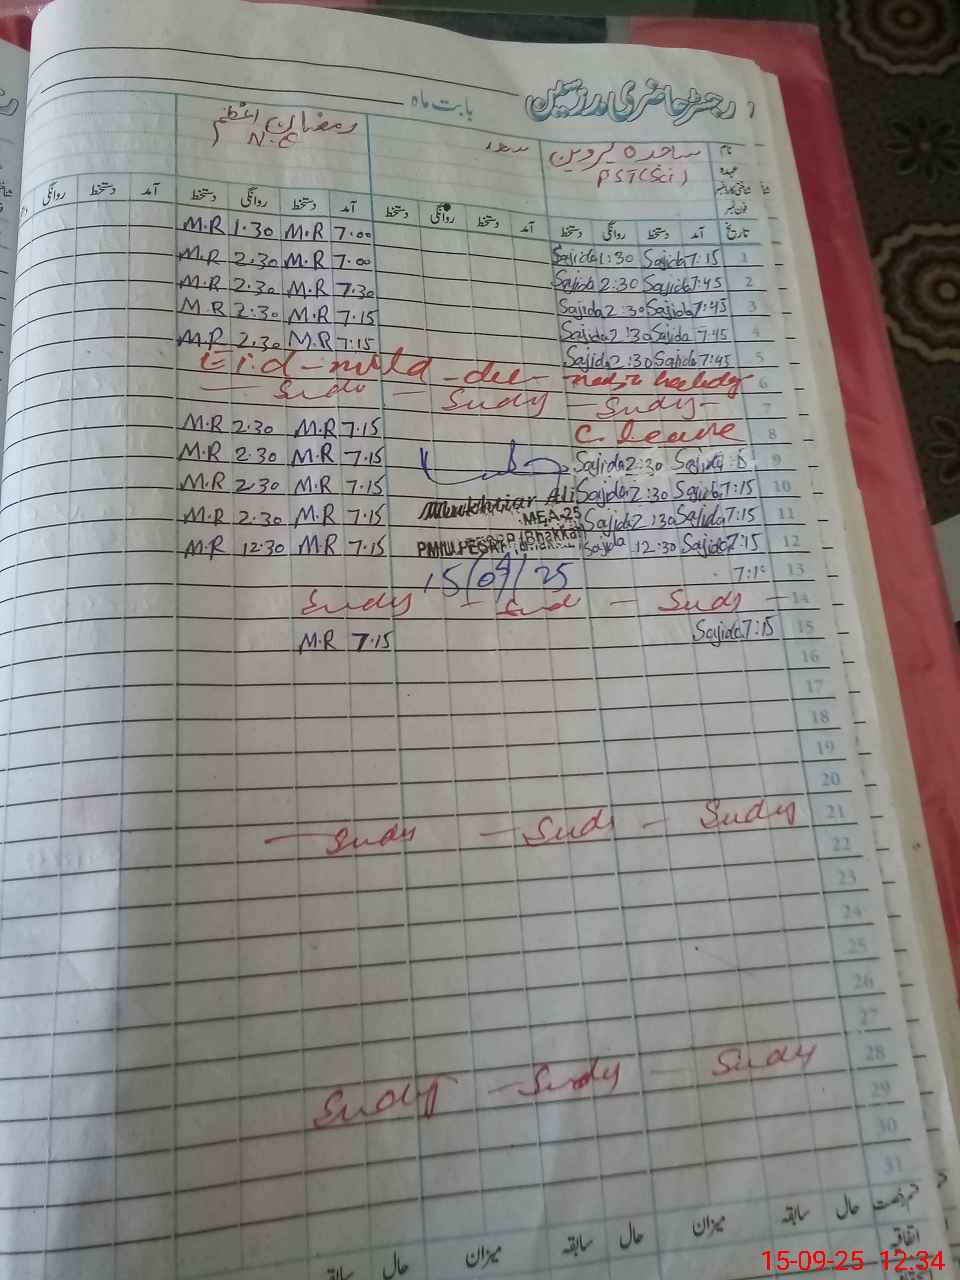 رجسٹر حاضری مدرسین
بابت ماہ
نام ساجدہ پروین
عہدہ PST(Sci)
رمضان
N.C
تاریخ آمد دستخط روانگی دستخط آمد دستخط روانگی دستخط آمد دستخط روانگی دستخط آمد دستخط روانگی
M.R 1.30 M.R 7.00
Sajida 1:30 Sajida 7:15 1
M.R 2.30 M.R 7.00
Sajida 2:30 Sajida 7:45 2
M.R 2.30 M.R 7.30
Sajida 2:30 Sajida 7:45 3
M.R 2.30 M.R 7.15
Sajida 2:30 Sajida 7:45 4
M.R 2.30 M.R 7.15
Sajida 2:30 Sajida 7:45 5
Eid-milad 6
Sudy - Sudy - Sudy - 7
M.R 2.30 M.R 7.15 C. leave 8
M.R 2.30 M.R 7.15 Sajida 2:30 9
M.R 2.30 M.R 7.15 Mukhtiar Ali Sajida 2:30 Sajida 7:15 10
M.R 2.30 M.R 7.15 MEA.25 Sajida 2:30 Sajida 7:15 11
M.R 12.30 M.R 7.15 (Bhakkar) Sajida 12:30 Sajida 7:15 12
15/09/25 13
Sudy - Sud - Sudy - 14
M.R 7.15 Sajida 7:15 15
16
17
18
19
20
- Sudy - Sudy - Sudy 21
22
23
24
25
26
27
Sudy - Sudy - Sudy 28
29
30
31
قسم رخصت حال سابقہ میزان حال سابقہ میزان حال سابقہ
اتفاقیہ
15-09-25 12:34